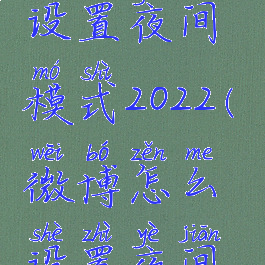 设置夜间
mó shì
模式2022(
wēi bó zěn me
微博怎么
shè zhì yè jiān
设置夜间